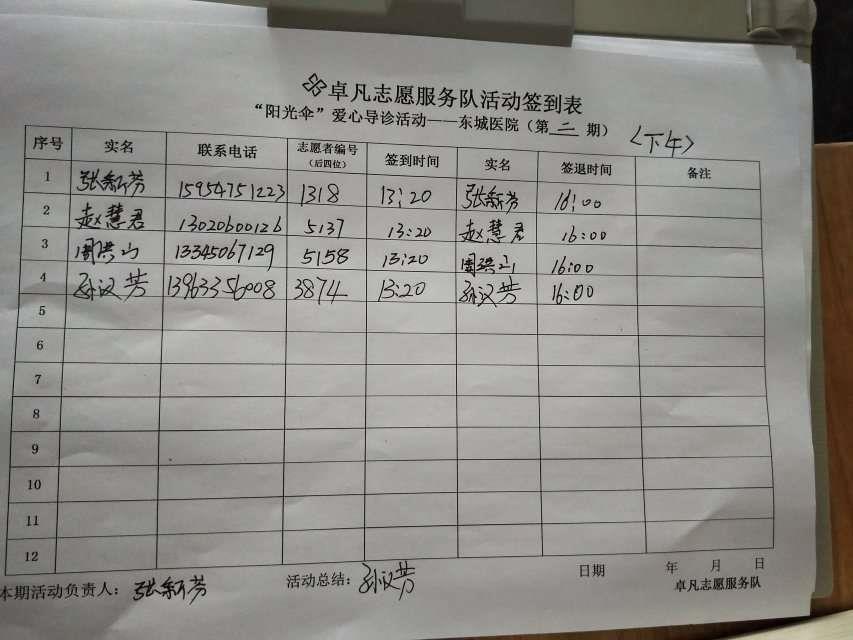 卓凡志愿服务队活动签到表
“阳光伞”爱心导诊活动——东城医院（第 二 期） <下午>
序号 实名 联系电话 志愿者编号（后四位） 签到时间 实名 签退时间 备注
1 张新芳 15954751223 1318 13:20 张新芳 16:00
2 赵慧君 13020600126 5137 13:20 赵慧君 16:00
3 周洪山 13345067129 5158 13:20 周洪山 16:00
4 孙汉芳 13963356008 3874 13:20 孙汉芳 16:00
5
6
7
8
9
10
11
12
本期活动负责人： 张新芳 活动总结： 孙汉芳 日期 年 月 日
卓凡志愿服务队